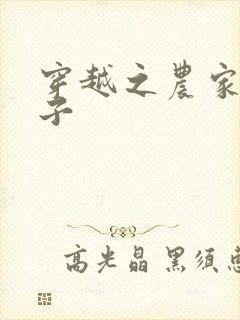 穿越之農家
子
高光晶 黑須